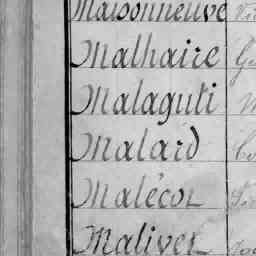 Maisonneuve
Malhaire
Malaguti
Malard
Malécot
Malivet